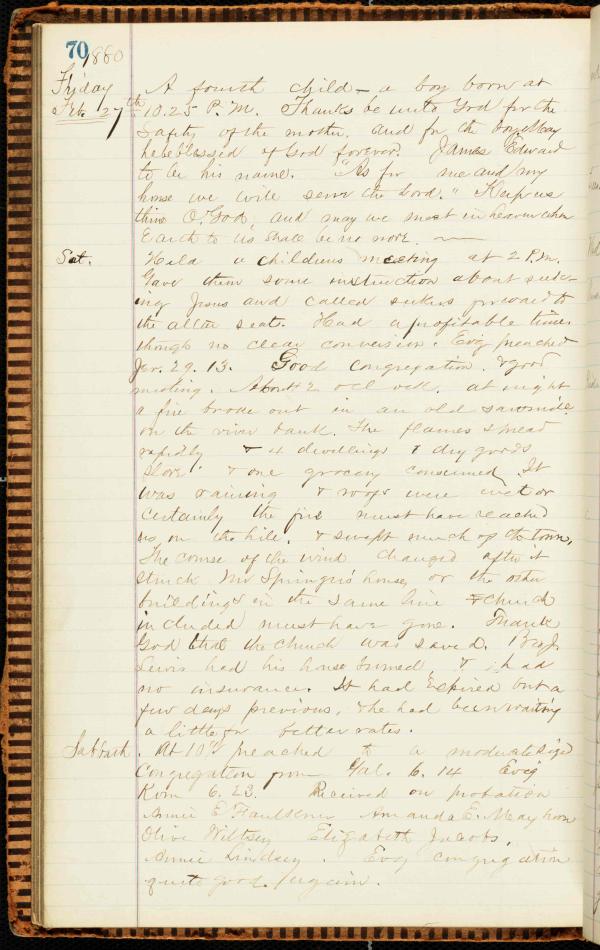 70 1880
Friday A fourth child - a boy born at
Feb. 27th 10.25 P.M. Thanks be unto God for the
Safety of the mother, and for the boy. May
he be blessed of God forever. James Edward
to be his name. "As for me and my
house we will serve the Lord." Keep us
thine O. God, and may we meet in heaven when
Earth to us shall be no more.
Sat. Held a childrens meeting at 2 P.M.
Gave them some instruction about seek-
ing Jesus and called seekers forward to
the altar seats. Had a profitable time
though no clear conversion. Ev'g preached
Jer. 29. 13. Good congregation & good
meeting. About 12 ocl ock. at night
a fire broke out in an old sawmill
on the river bank. The flames spread
rapidly & 4 dwellings & dry goods
store & one grocery consumed. It
was raining & roofs were wet or
certainly the fire must have reached
us on the hill, & swept much of the town.
The course of the wind changed after it
struck Mr Springer's house, or the other
buildings in the same line & church
included must have gone. Thank
God that the church was saved. Bro J.
Lewis had his house burned & had
no insurance. It had Expired but a
few days previous, & he had been waiting
a little for better rates.
Sabbath. At 10½ preached to a moderate sized
Congregation from Gal. 6. 14 Ev'g
Rom 6. 23. Received on probation
Annie E Faulkner Amanda E. Mayhorn
Olive Wiltsey Elizabeth Jacobs,
Annie Lindsey. Ev'g congregation
quite good again.